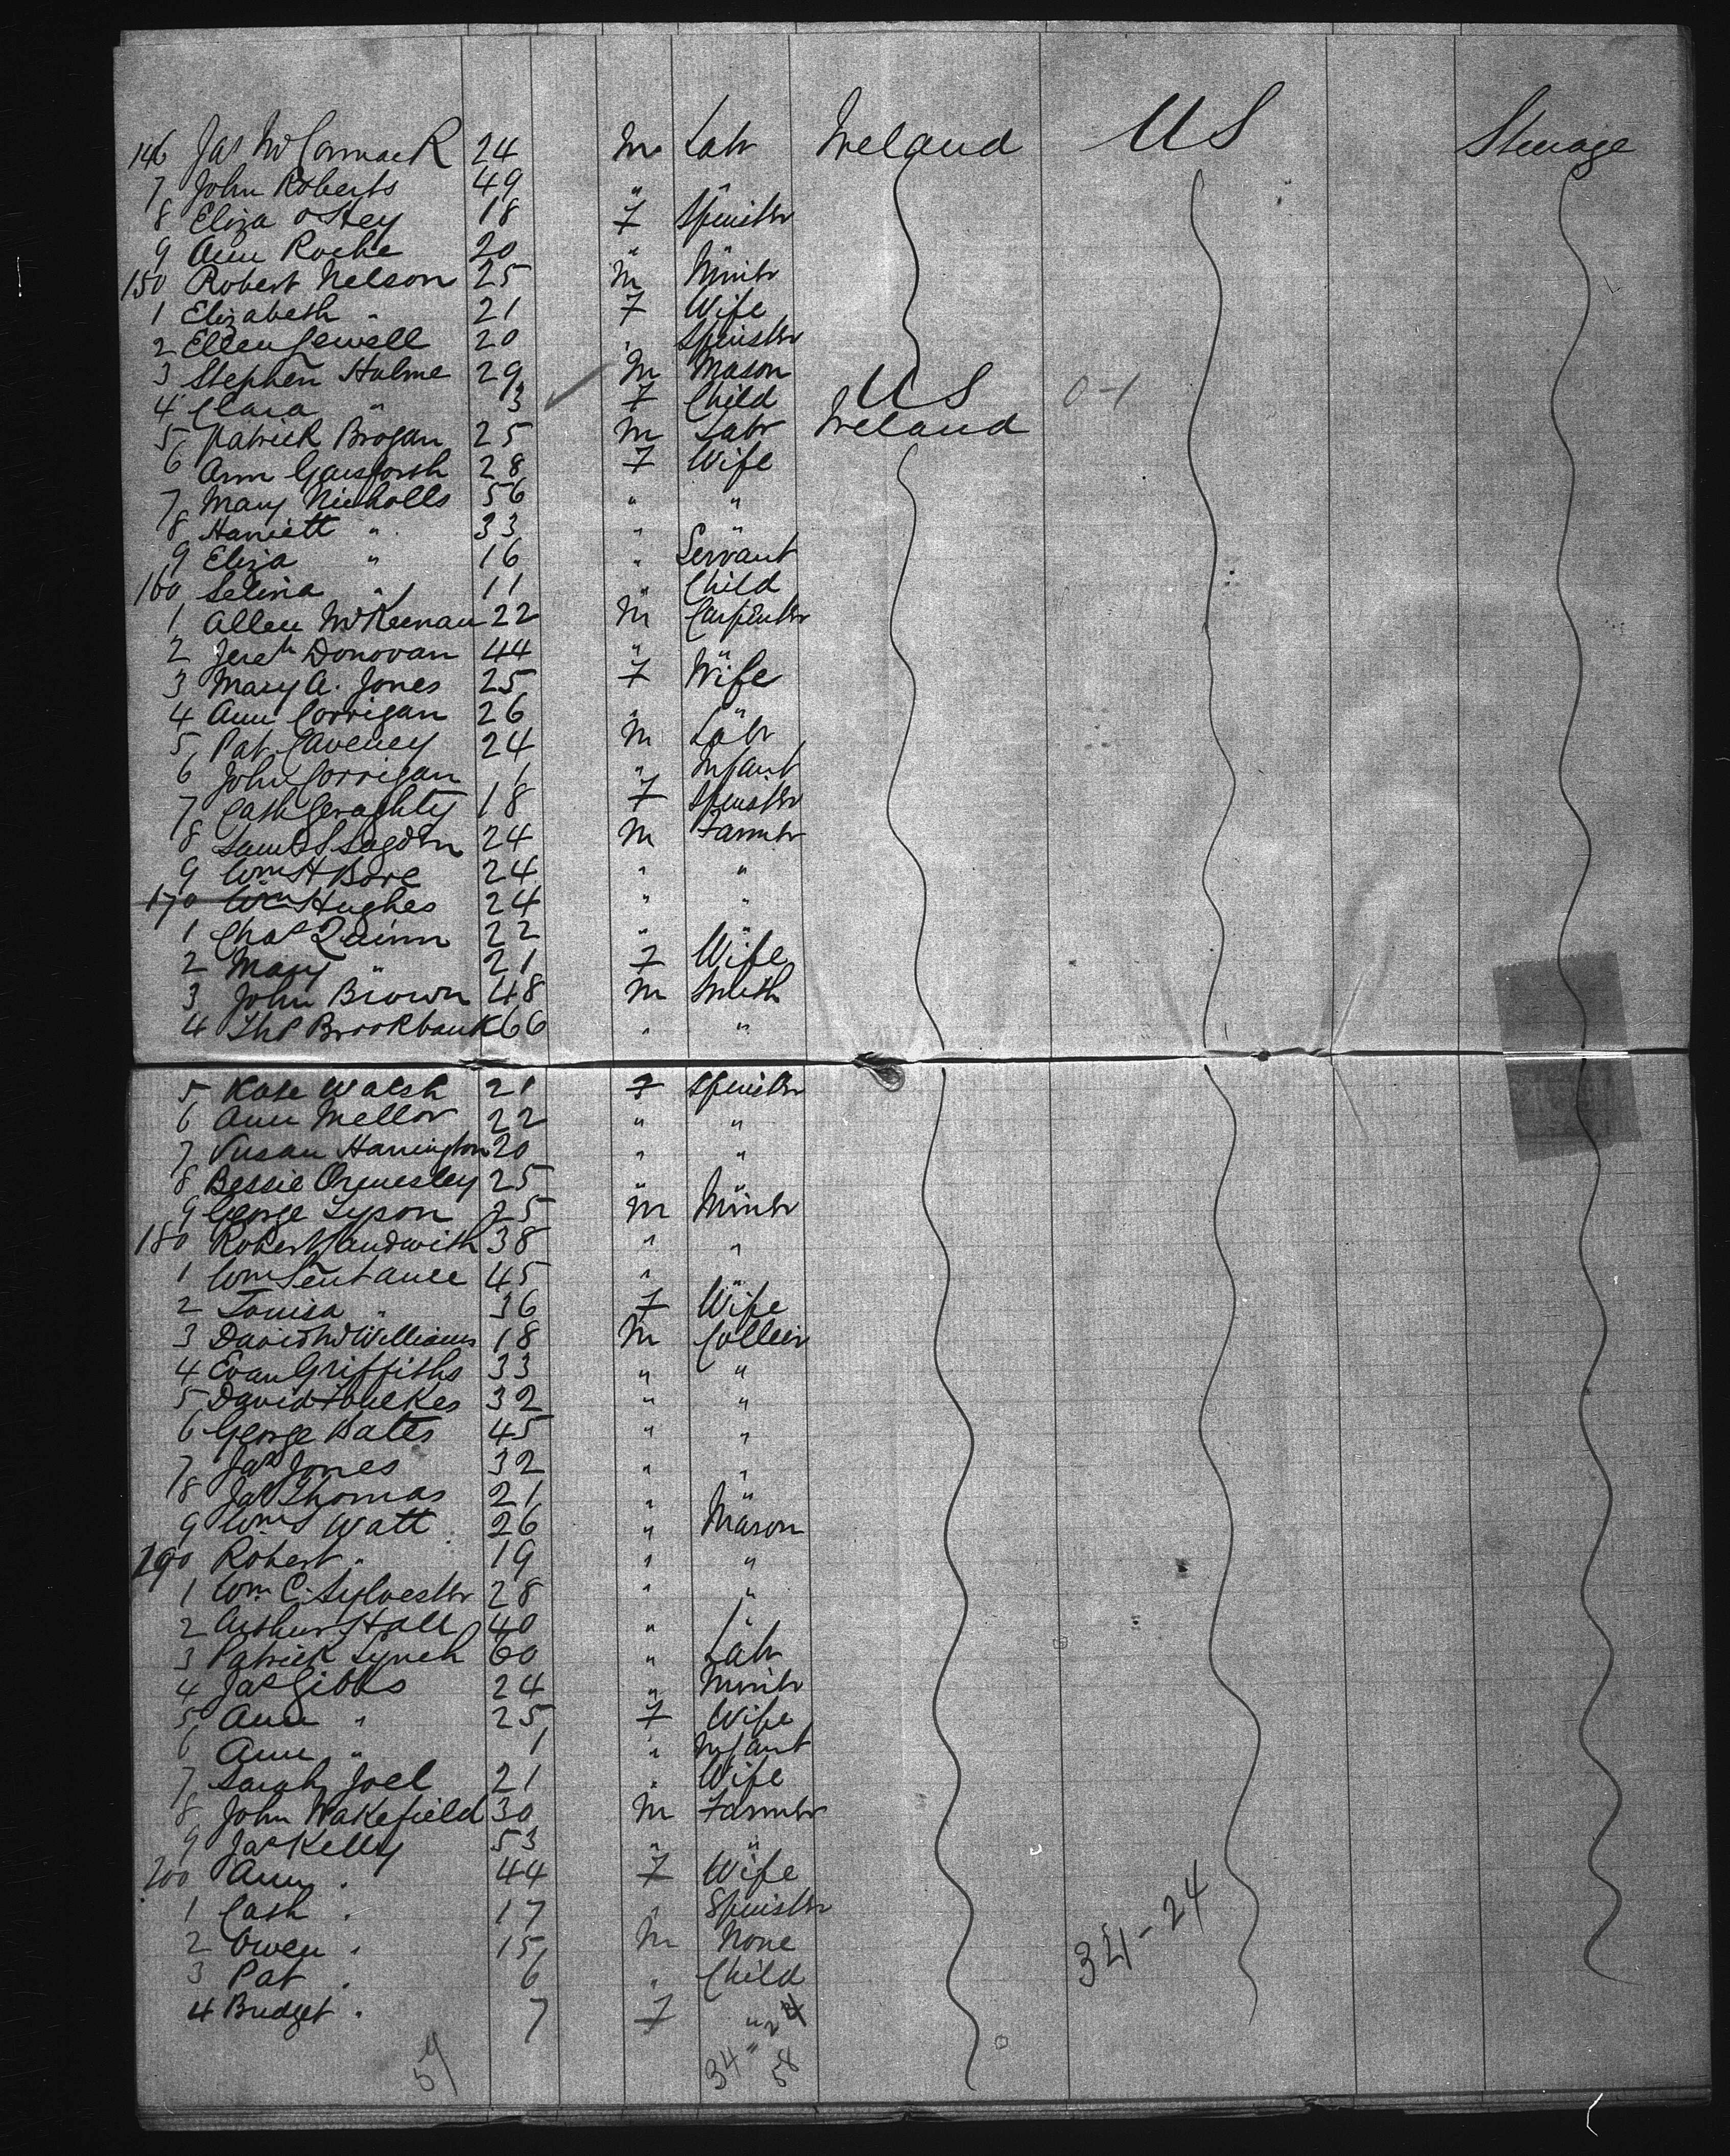 146 Jas McCormack 24 M Labr Ireland US Steerage
7 John Roberts 49 " "
8 Eliza 18 F Spinster
9 Ann Roche 20 " "
150 Robert Nelson 25 M Miner
1 Elizabeth " 21 F Wife
2 Ellen Jewell 20 " Spinster
3 Stephen Hulme 29 M Mason
4 Clara " 3 F Child US 0-1
5 Patrick Brogan 25 M Labr Ireland
6 Ann Gainsforth 28 F Wife
7 Mary Nicholls 56 " "
8 Harriett " 33 " "
9 Eliza " 16 " Servant
160 Selina " 11 " Child
1 Allen McKeenan 22 M Carpenter
2 Jereh Donovan 44 " "
3 Mary A. Jones 25 F Wife
4 Ann Corrigan 26 " "
5 Pat Caveney 24 M Labr
6 John Corrigan 1 " Infant
7 Cath Geraghty 18 F Spinster
8 Saml S Sugden 24 M Farmer
9 Wm H Bore 24 " "
170 Wm Hughes 24 " "
1 Chas Quinn 22 " "
2 Mary " 21 F Wife
3 John Brown 48 M Smith
4 Thos Brookbank 66 " "
5 Kate Walsh 21 F Spinster
6 Ann Mellor 22 " "
7 Susan Harrington 20 " "
8 Bessie Ormesley 25 " "
9 George Tyson 25 M Miner
180 Robert Sandwith 38 " "
1 Wm Sentance 45 " "
2 Louisa " 36 F Wife
3 David W Williams 18 M Collier
4 Evan Griffiths 33 " "
5 David Foulkes 32 " "
6 George Bates 45 " "
7 Jas Jones 32 " "
8 Jas Thomas 21 " "
9 Wm S Watt 26 " Mason
190 Robert " 19 " "
1 Wm C. Sylvester 28 " "
2 Arthur Hall 40 " "
3 Patrick Lynch 60 " Labr
4 Jas Gibbs 24 " Miner
5 Ann " 25 F Wife
6 Ann " 1 " Infant
7 Sarah Joel 21 " Wife
8 John Wakefield 30 M Farmer
9 Jas Kelly 53 " "
200 Ann " 44 F Wife
1 Cath " 17 " Spinster
2 Owen " 15 M None 34-24
3 Pat " 6 " Child
4 Bridget " 7 F " 24
59 34 " 58